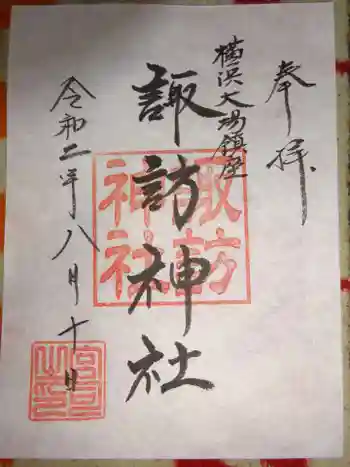 奉拝
横浜大場鎮座
諏訪神社
令和二年八月十日
諏訪
神社
宮司
之印